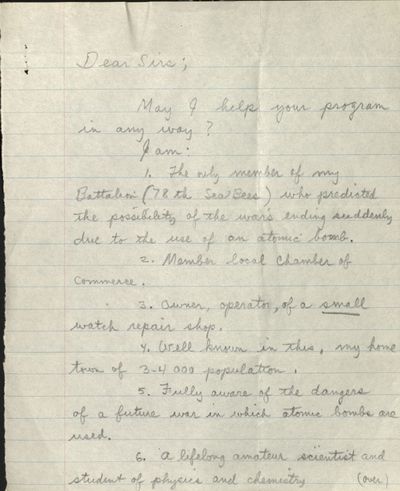 Dear Sirs;
May I help your program
in any way?
I am:
1. The only member of my
Battalion (78 th SeaBees) who predicted
the possibility of the wars ending suddenly
due to the use of an atomic bomb.
2. Member local Chamber of
Commerce.
3. Owner, operator, of a small
watch repair shop.
4. Well known in this, my home
town of 3-4 000 population.
5. Fully aware of the dangers
of a future war in which atomic bombs are
used.
6. A lifelong amateur scientist and
student of physics and chemistry (over)